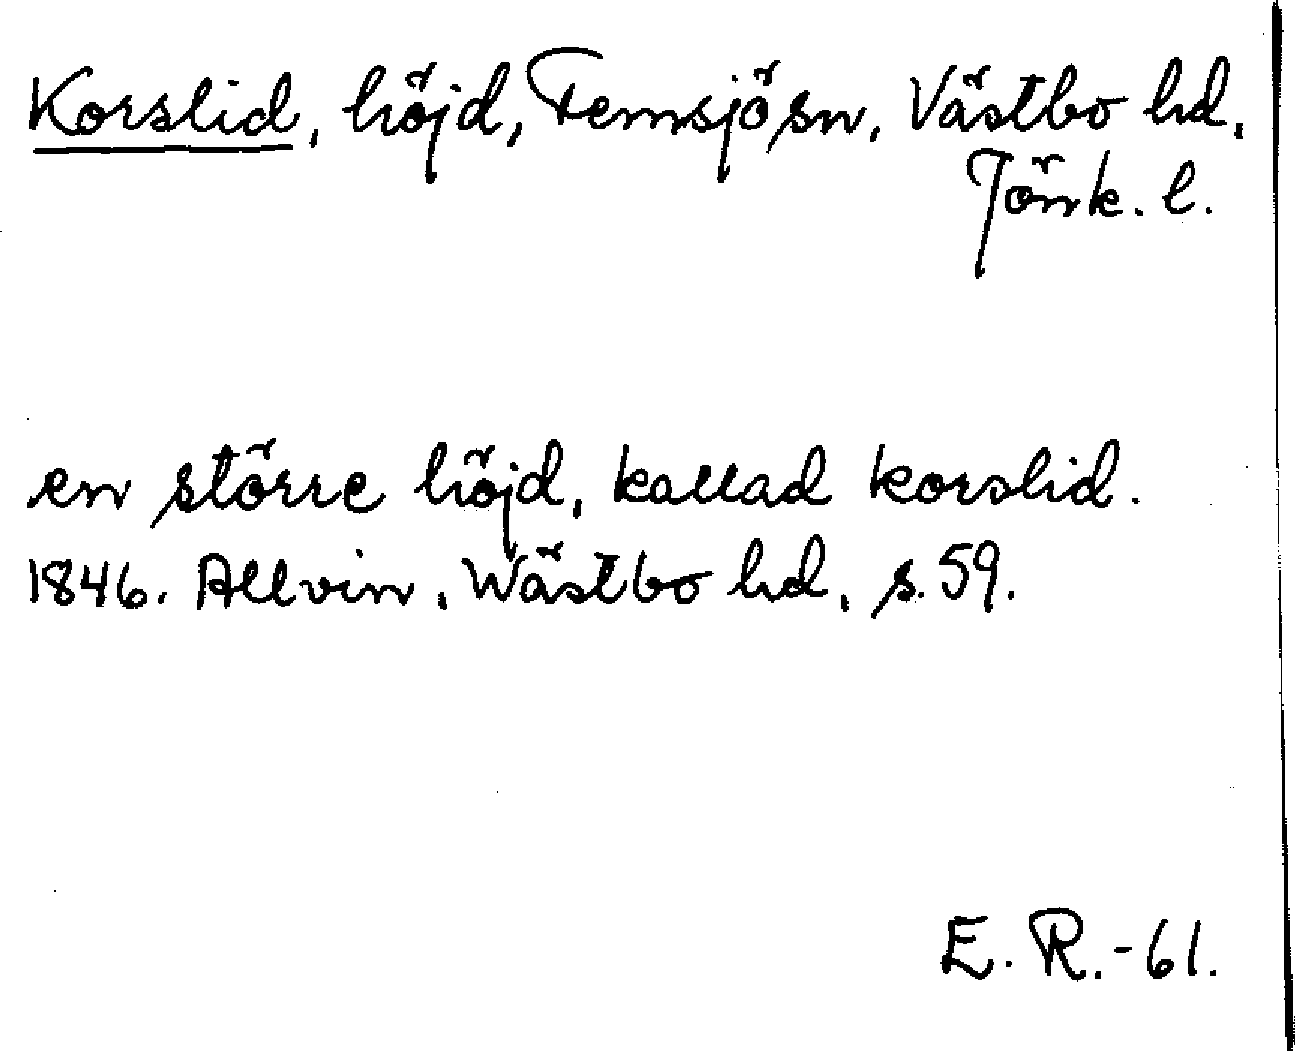 Korslid, höjd, Femsjö sn, Västbo hd,
Jönk. l.
en större höjd, kallad korslid.
1846. Allvin, Wästbo hd, s. 59.
E. R. -61.